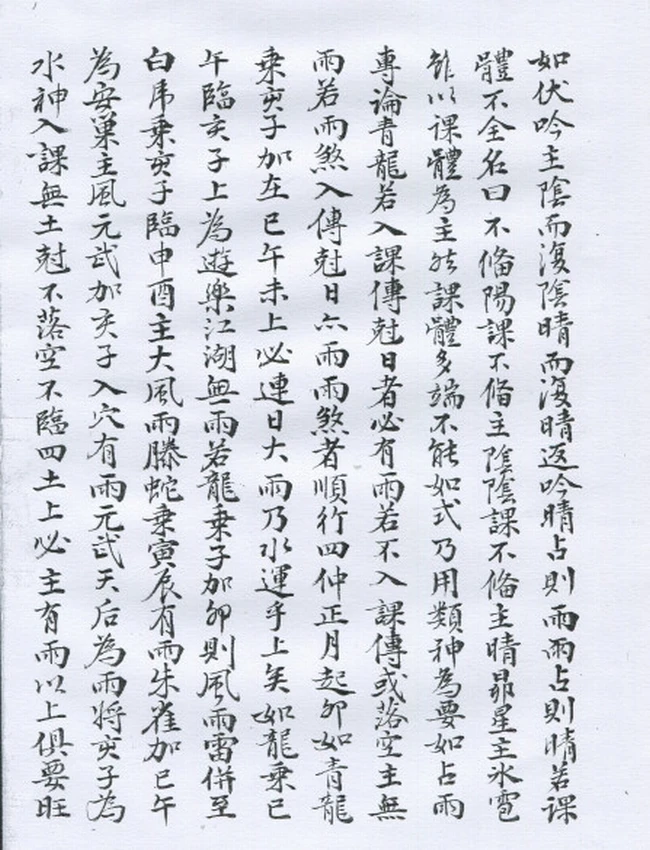 如伏吟主陰而復陰晴而復晴返吟晴占則雨雨占則晴若課
體不全名曰不俻陽課不俻主陰陰課不俻主晴昴星主氷雹
雖以課體為主然課體多端不能如式乃用類神為要如占雨
專論青龍若入課傳尅日者必有雨若不入課傳或落空主無
雨若雨煞入傳尅日亦雨雨煞者順行四仲正月起卯如青龍
乘亥子加在巳午未上必連日大雨乃水運乎上矣如龍乗巳
午臨亥子上為遊樂江湖無雨若龍乗子加卯則風雨雷併至
白虎乗亥子臨申酉主大風雨螣蛇乗寅辰有雨朱雀加巳午
為安巢主風元武加亥子入穴有雨元武天后為雨將亥子為
水神入課無土尅不落空不臨四土上必主有雨以上俱要旺